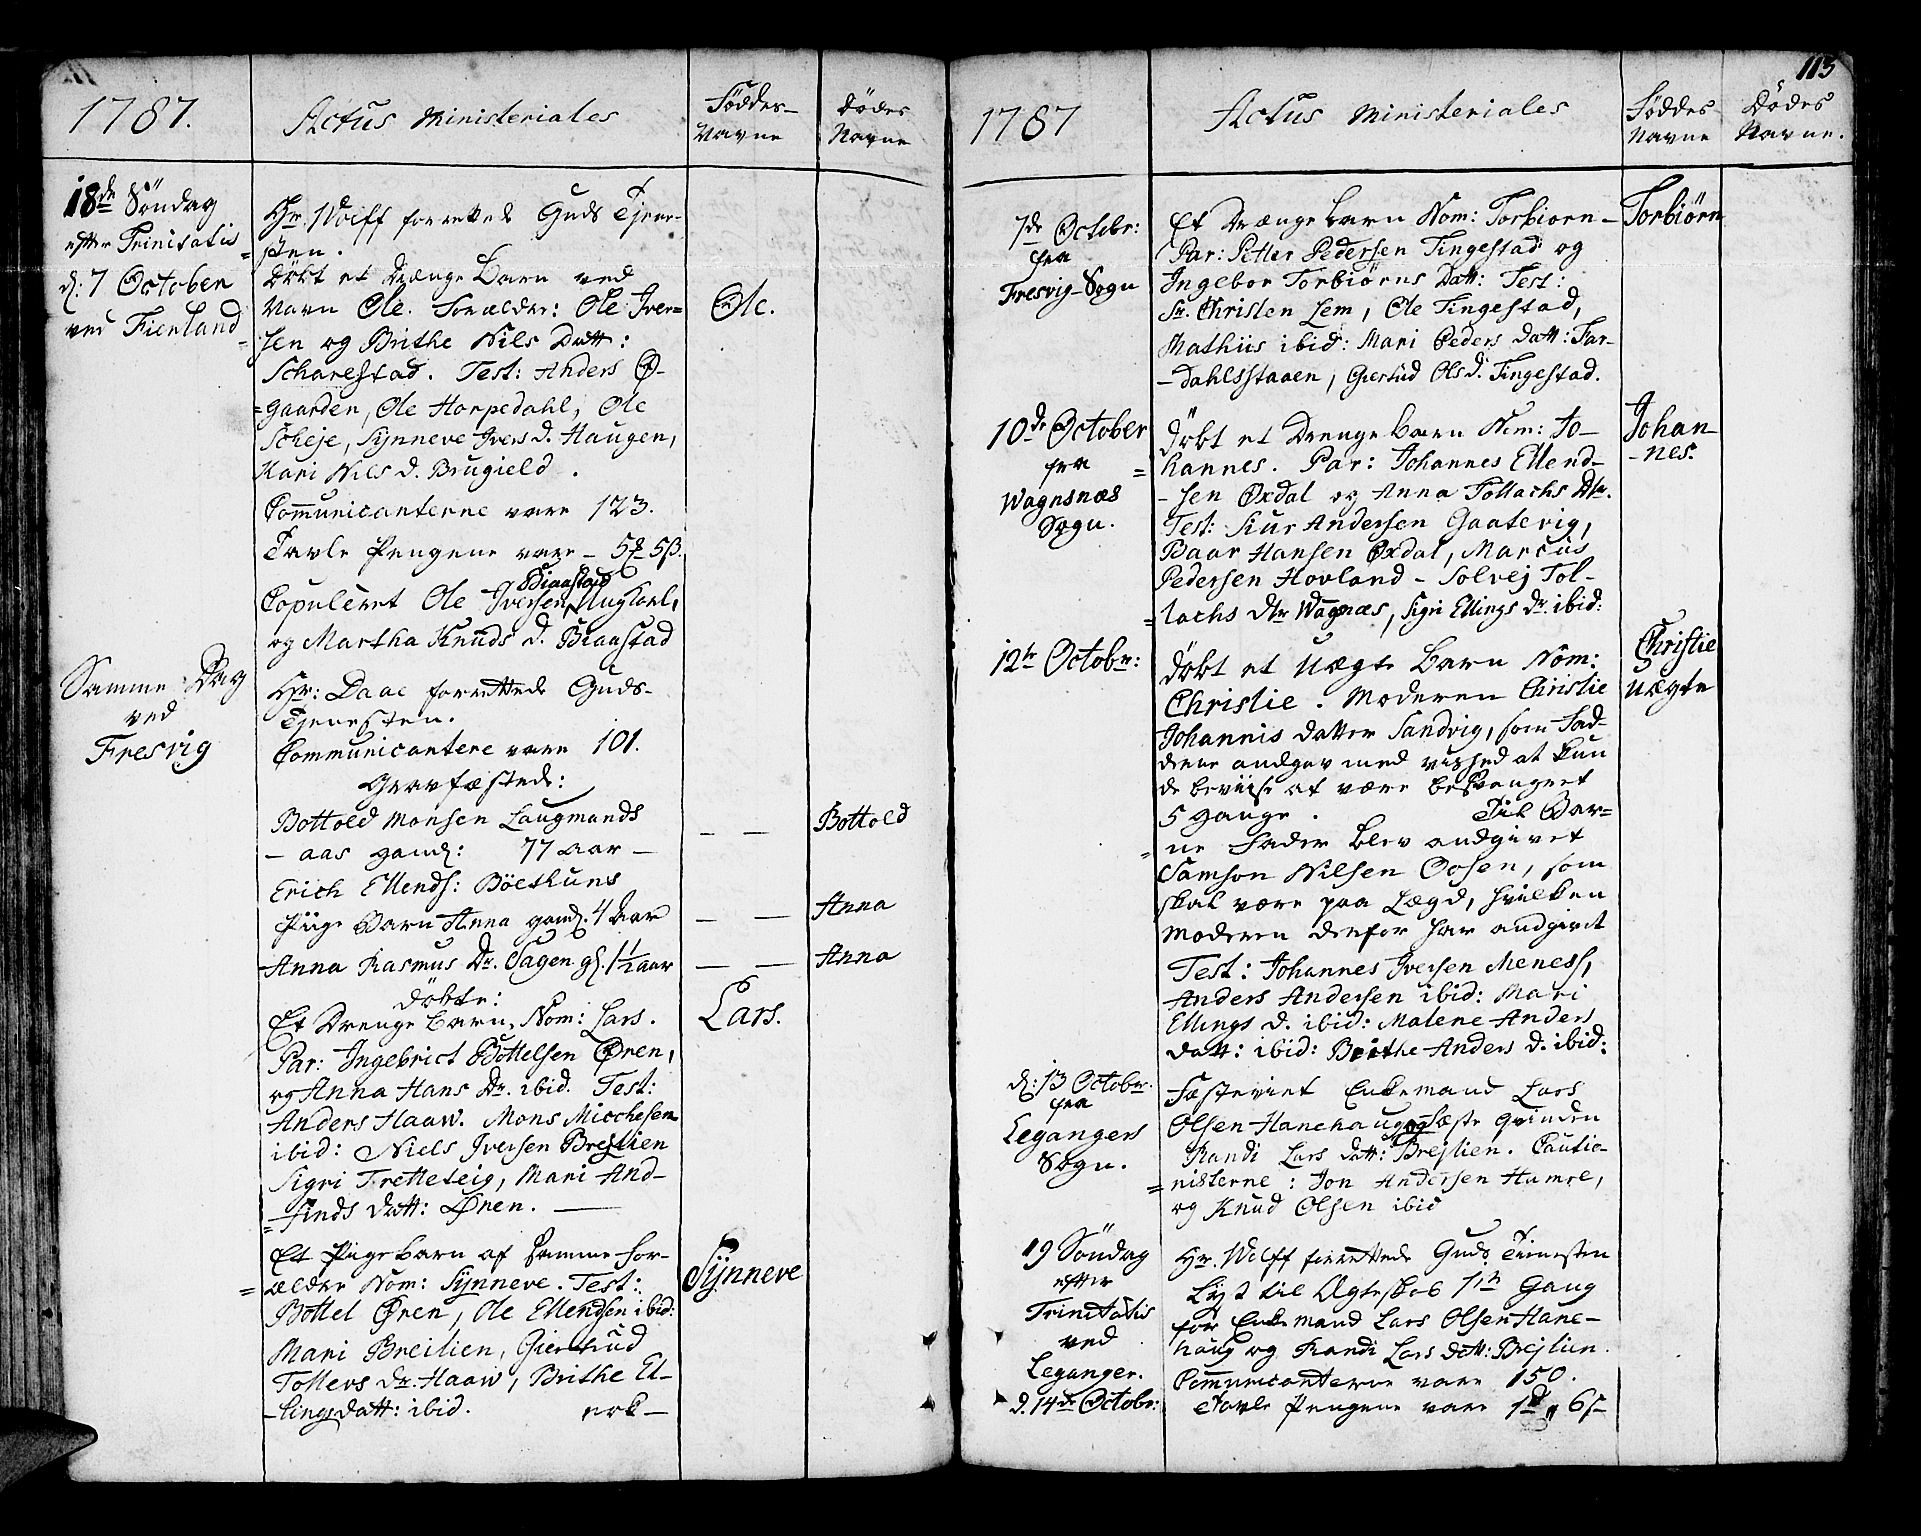 1787.
Actus Ministeriales
Föddes
Navne
Dödes
Navne
18de Söndag
efter Trinitatis
d: 7 October
ved Fierland
Hr. Wolff forrettede Guds Tjene-
=sten.
Döbt et Drænge Barn ved
Navn Ole. Forældre: Ole Iver=
=sen og Brithe Nils Datt:
Scharestad. Test: Anders Ø-
=gaarden, Ole Horpedahl, Ole
Scheje, Synneve Ivers D. Haugen,
Mari Nils D. Brugield.
Communicanterne vare 123.
Tavle Pengene vare - 5 5ß.
Biaastad
Copuleret Ole Iversen Ungkarl,
og Martha Knuds D. Biaastad
Ole.
Samme Dag
ved
Fresvig
Hr: Daae forrettede Guds-
Tjenesten.
Communicantere vare 101.
Gravfæstede:
Bottold Monsen Laugmands
- aas gaml: 77 aar -
Erich Ellends: Böethuns
Piige Barn Anna gaml. 4 Aar
Anna Rasmus Dr. Sagen gl. 1½ aar
Bottold
Anna
Anna
Döbte:
Et Drenge Barn, Nom: Lars.
Par: Ingebrict Bottelsen Øren,
og Anna Hans Dr. ibid. Test:
Anders Haaw. Mons Micchelsen
ibid: Niels Iversen Brejlien
Sigri Tretteteig, Mari And-
=finds Datt: Øren.
Lars.
Et Pige Barn af samme For-
=ældre Nom: Synneve. Test:
Bottel Øren, Ole Ellendsen ibid:
Mari Breilien, Giertrud
Tollevs Dr. Haaw, Brithe El-
-lings Datt: ibid.
Synneve
113
1787
Actus Ministeriales
Föddes
Navne
Dödes
Navne.
7de Octobr:
fra
Fresvig-Sogn
Et Drænge Barn Nom: Torbiorn-
Par: Petter Pedersen Tingestad og
Ingebor Torbiörns Datt: Test:
Sr. Christen Lem, Ole Tingestad,
Mathiis ibid: Mari Peders Datt: Far-
-dahlsstaaen, Giertud Ols D. Tingestad.
Torbiörn
10de October
fra
Wagnsnæs
Sogn.
Döbt et Drenge Barn Nom: Jo-
=hannes. Par: Johannes Ellend-
-sen Øxdal og Anna Tollachs Dtr.
Test: Siur Andersen Gaatevig,
Baar Hansen Øxdal, Marcus
Pedersen Hovland - Solvej Tol-
=lachs Dtr Wagnæs, Sigri Ellings Dr. ibid:
Johan-
-nes.
12te Octobr:
Döbt et Uægte Barn Nom:
Christie. Moderen Christie
Johannis Datter Sandvig, som Fad-
derne andgav med vished at kun
de beviise at være besvangret
5 gange. Til Bar=
=ne Fader blev andgivet
Samson Nilsen Oosen, som
skal være paa Lægd, hvilken
Moderen derfor har andgivet
Test: Johannes Iversen Meness,
Anders Andersen ibid: Mari
Ellings D. ibid: Malene Anders
Datt: ibid: Brithe Anders D. ibid:
Christie
Uægte
d: 13 Octobr.
fra
Legangers
Sogn.
Fæsteviet Enkemand Lars
Olsen Hanehaug og Fæste Qvinden
Randi Lars Datt: Brejlien. Cautio-
=nisterne: Jon Andersen Hamre,
og Knud Olsen ibid
19 Söndag
efter
Trinitatis
ved
Leganger.
d. 14de Octobr:
Hr. Wolff forrettede Guds Tienesten
Lyst til Ægteskab 1te Gang
for Enkemand Lars Olsen Hane-
haug og Randi Lars Datt: Brejlien.
Communicanterne vare 150.
Tavle Pengene vare 1d „ 6s